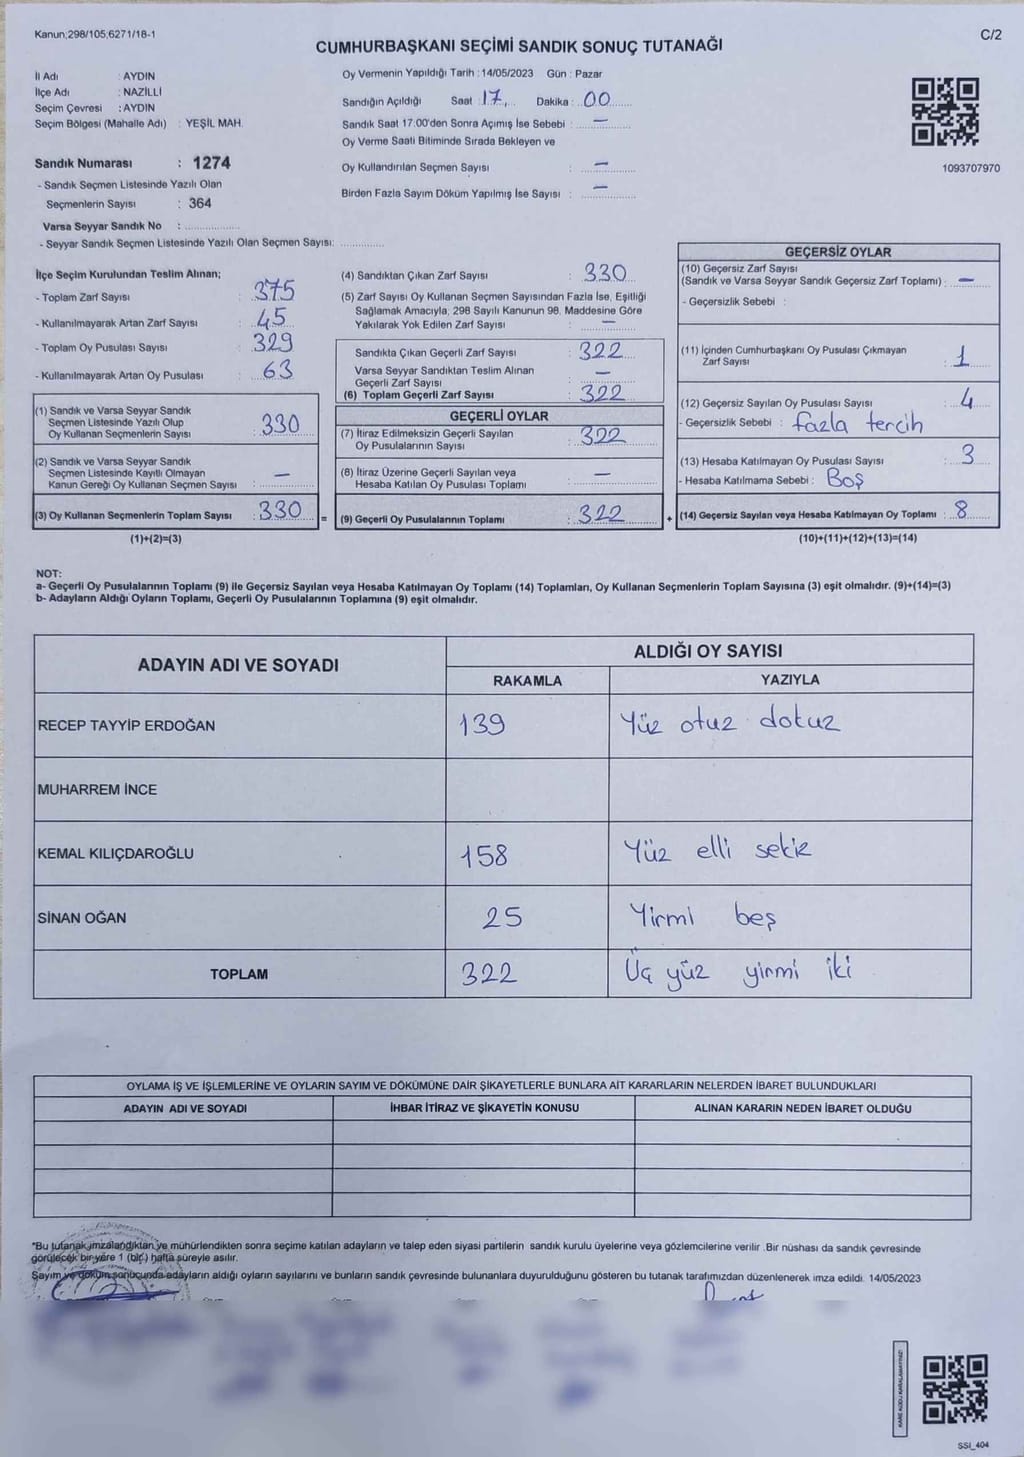 Kanun;298/105,6271/18-1
C/2
CUMHURBAŞKANI SEÇİMİ SANDIK SONUÇ TUTANAĞI
İl Adı : AYDIN
İlçe Adı : NAZİLLİ
Seçim Çevresi : AYDIN
Seçim Bölgesi (Mahalle Adı) : YEŞİL MAH.
Sandık Numarası : 1274
- Sandık Seçmen Listesinde Yazılı Olan
Seçmenlerin Sayısı : 364
Varsa Seyyar Sandık No :
- Seyyar Sandık Seçmen Listesinde Yazılı Olan Seçmen Sayısı:
Oy Vermenin Yapıldığı Tarih : 14/05/2023 Gün : Pazar
Sandığın Açıldığı Saat : 17 Dakika : 00
Sandık Saat 17:00'den Sonra Açımış İse Sebebi : —
Oy Verme Saati Bitiminde Sırada Bekleyen ve
Oy Kullandırılan Seçmen Sayısı : —
Birden Fazla Sayım Döküm Yapılmış İse Sayısı : —
1093707970
İlçe Seçim Kurulundan Teslim Alınan;
- Toplam Zarf Sayısı : 375
- Kullanılmayarak Artan Zarf Sayısı : 45
- Toplam Oy Pusulası Sayısı : 329
- Kullanılmayarak Artan Oy Pusulası : 63
(1) Sandık ve Varsa Seyyar Sandık
Seçmen Listesinde Yazılı Olup
Oy Kullanan Seçmenlerin Sayısı : 330
(2) Sandık ve Varsa Seyyar Sandık
Seçmen Listesinde Kayıtlı Olmayan
Kanun Gereği Oy Kullanan Seçmen Sayısı : —
(3) Oy Kullanan Seçmenlerin Toplam Sayısı : 330
(1)+(2)=(3)
(4) Sandıktan Çıkan Zarf Sayısı : 330
(5) Zarf Sayısı Oy Kullanan Seçmen Sayısından Fazla İse, Eşitliği
Sağlamak Amacıyla, 298 Sayılı Kanunun 98. Maddesine Göre
Yakılarak Yok Edilen Zarf Sayısı : —
Sandıkta Çıkan Geçerli Zarf Sayısı : 322
Varsa Seyyar Sandıktan Teslim Alınan
Geçerli Zarf Sayısı : —
(6) Toplam Geçerli Zarf Sayısı : 322
GEÇERLİ OYLAR
(7) İtiraz Edilmeksizin Geçerli Sayılan
Oy Pusulalarının Sayısı : 322
(8) İtiraz Üzerine Geçerli Sayılan veya
Hesaba Katılan Oy Pusulası Toplamı : —
= (9) Geçerli Oy Pusulalarının Toplamı : 322 +
GEÇERSİZ OYLAR
(10) Geçersiz Zarf Sayısı
(Sandık ve Varsa Seyyar Sandık Geçersiz Zarf Toplamı) : —
- Geçersizlik Sebebi :
(11) İçinden Cumhurbaşkanı Oy Pusulası Çıkmayan
Zarf Sayısı : 1
(12) Geçersiz Sayılan Oy Pusulası Sayısı : 4
- Geçersizlik Sebebi : fazla tercih
(13) Hesaba Katılmayan Oy Pusulası Sayısı : 3
- Hesaba Katılmama Sebebi : Boş
(14) Geçersiz Sayılan veya Hesaba Katılmayan Oy Toplamı : 8
(10)+(11)+(12)+(13)=(14)
NOT:
a- Geçerli Oy Pusulalarının Toplamı (9) ile Geçersiz Sayılan veya Hesaba Katılmayan Oy Toplamı (14) Toplamları, Oy Kullanan Seçmenlerin Toplam Sayısına (3) eşit olmalıdır. (9)+(14)=(3)
b- Adayların Aldığı Oyların Toplamı, Geçerli Oy Pusulalarının Toplamına (9) eşit olmalıdır.
ADAYIN ADI VE SOYADI
ALDIĞI OY SAYISI
RAKAMLA YAZIYLA
RECEP TAYYİP ERDOĞAN 139 Yüz otuz dokuz
MUHARREM İNCE
KEMAL KILIÇDAROĞLU 158 Yüz elli sekiz
SİNAN OĞAN 25 Yirmi beş
TOPLAM 322 Üç yüz yirmi iki
OYLAMA İŞ VE İŞLEMLERİNE VE OYLARIN SAYIM VE DÖKÜMÜNE DAİR ŞİKAYETLERLE BUNLARA AİT KARARLARIN NELERDEN İBARET BULUNDUKLARI
ADAYIN ADI VE SOYADI İHBAR İTİRAZ VE ŞİKAYETİN KONUSU ALINAN KARARIN NEDEN İBARET OLDUĞU
*Bu tutanak imzalandıktan ve mühürlendikten sonra seçime katılan adayların ve talep eden siyasi partilerin sandık kurulu üyelerine veya gözlemcilerine verilir .Bir nüshası da sandık çevresinde
görülecek bir yere 1 (bir) hafta süreyle asılır.
Sayım ve döküm sonucunda adayların aldığı oyların sayılarını ve bunların sandık çevresinde bulunanlara duyurulduğunu gösteren bu tutanak tarafımızdan düzenlenerek imza edildi. 14/05/2023
KARE KODU KARALAMAYINIZ!
SSI_404